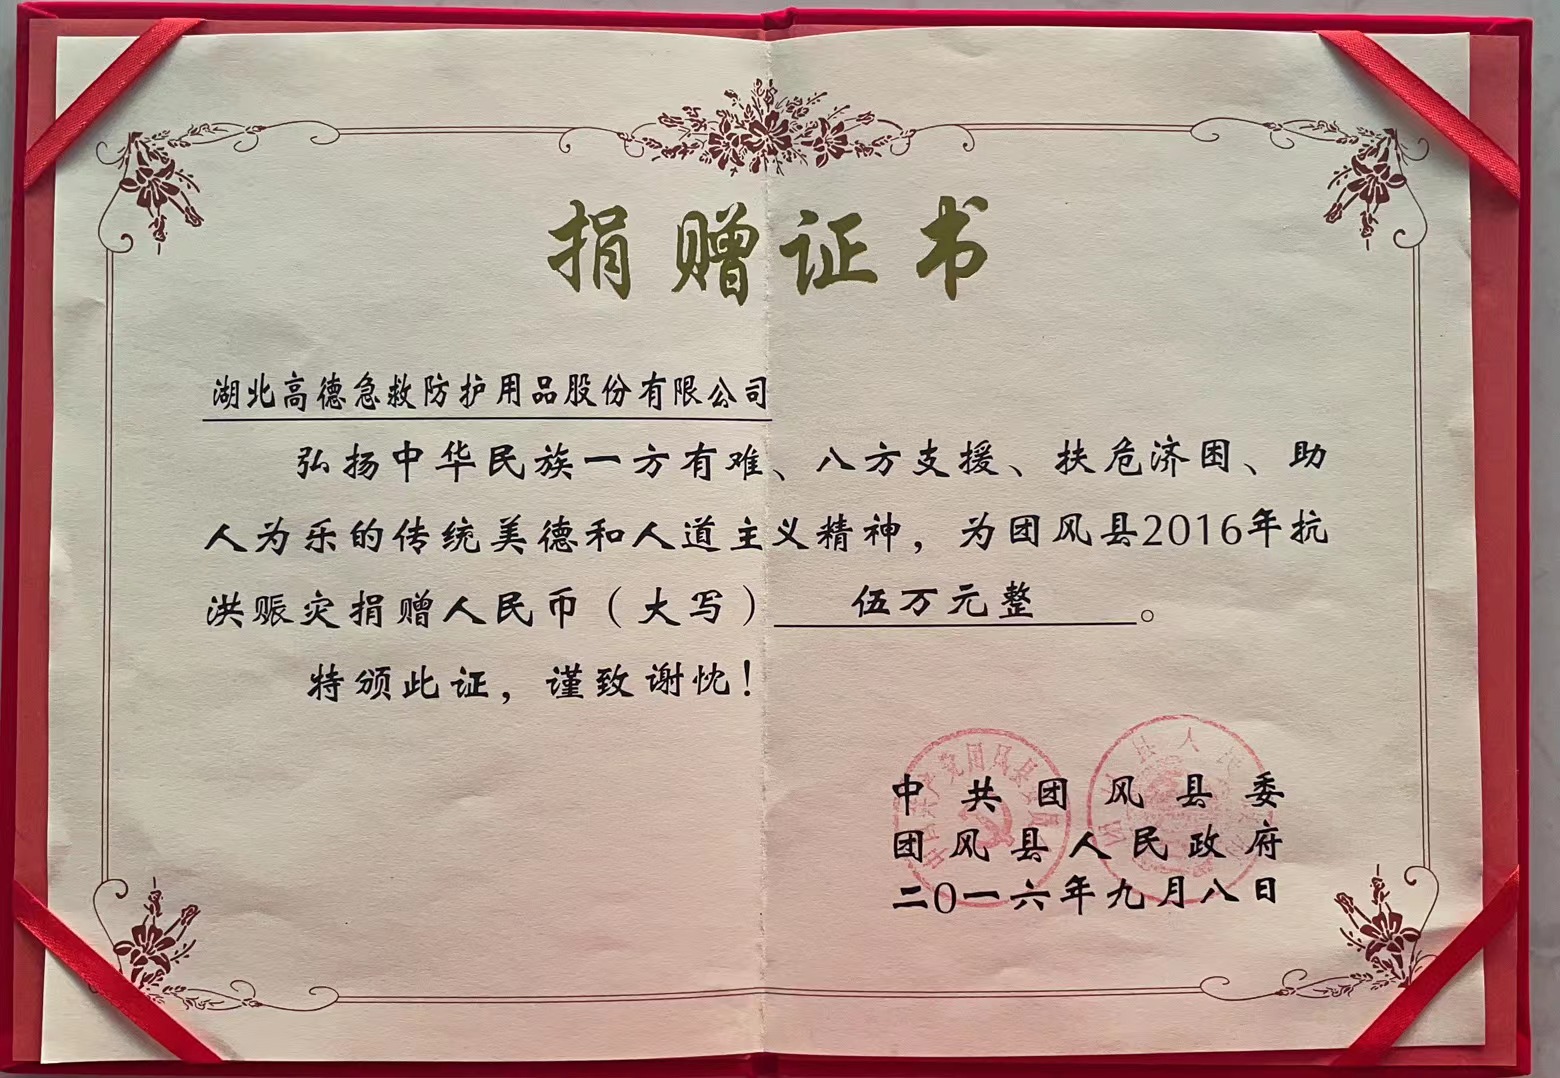 捐赠证书
湖北高德急救防护用品股份有限公司
弘扬中华民族一方有难、八方支援、扶危济困、助
人为乐的传统美德和人道主义精神，为团风县2016年抗
洪赈灾捐赠人民币（大写）伍万元整。
特颁此证，谨致谢忱！
中共团风县委
团风县人民政府
二〇一六年九月八日